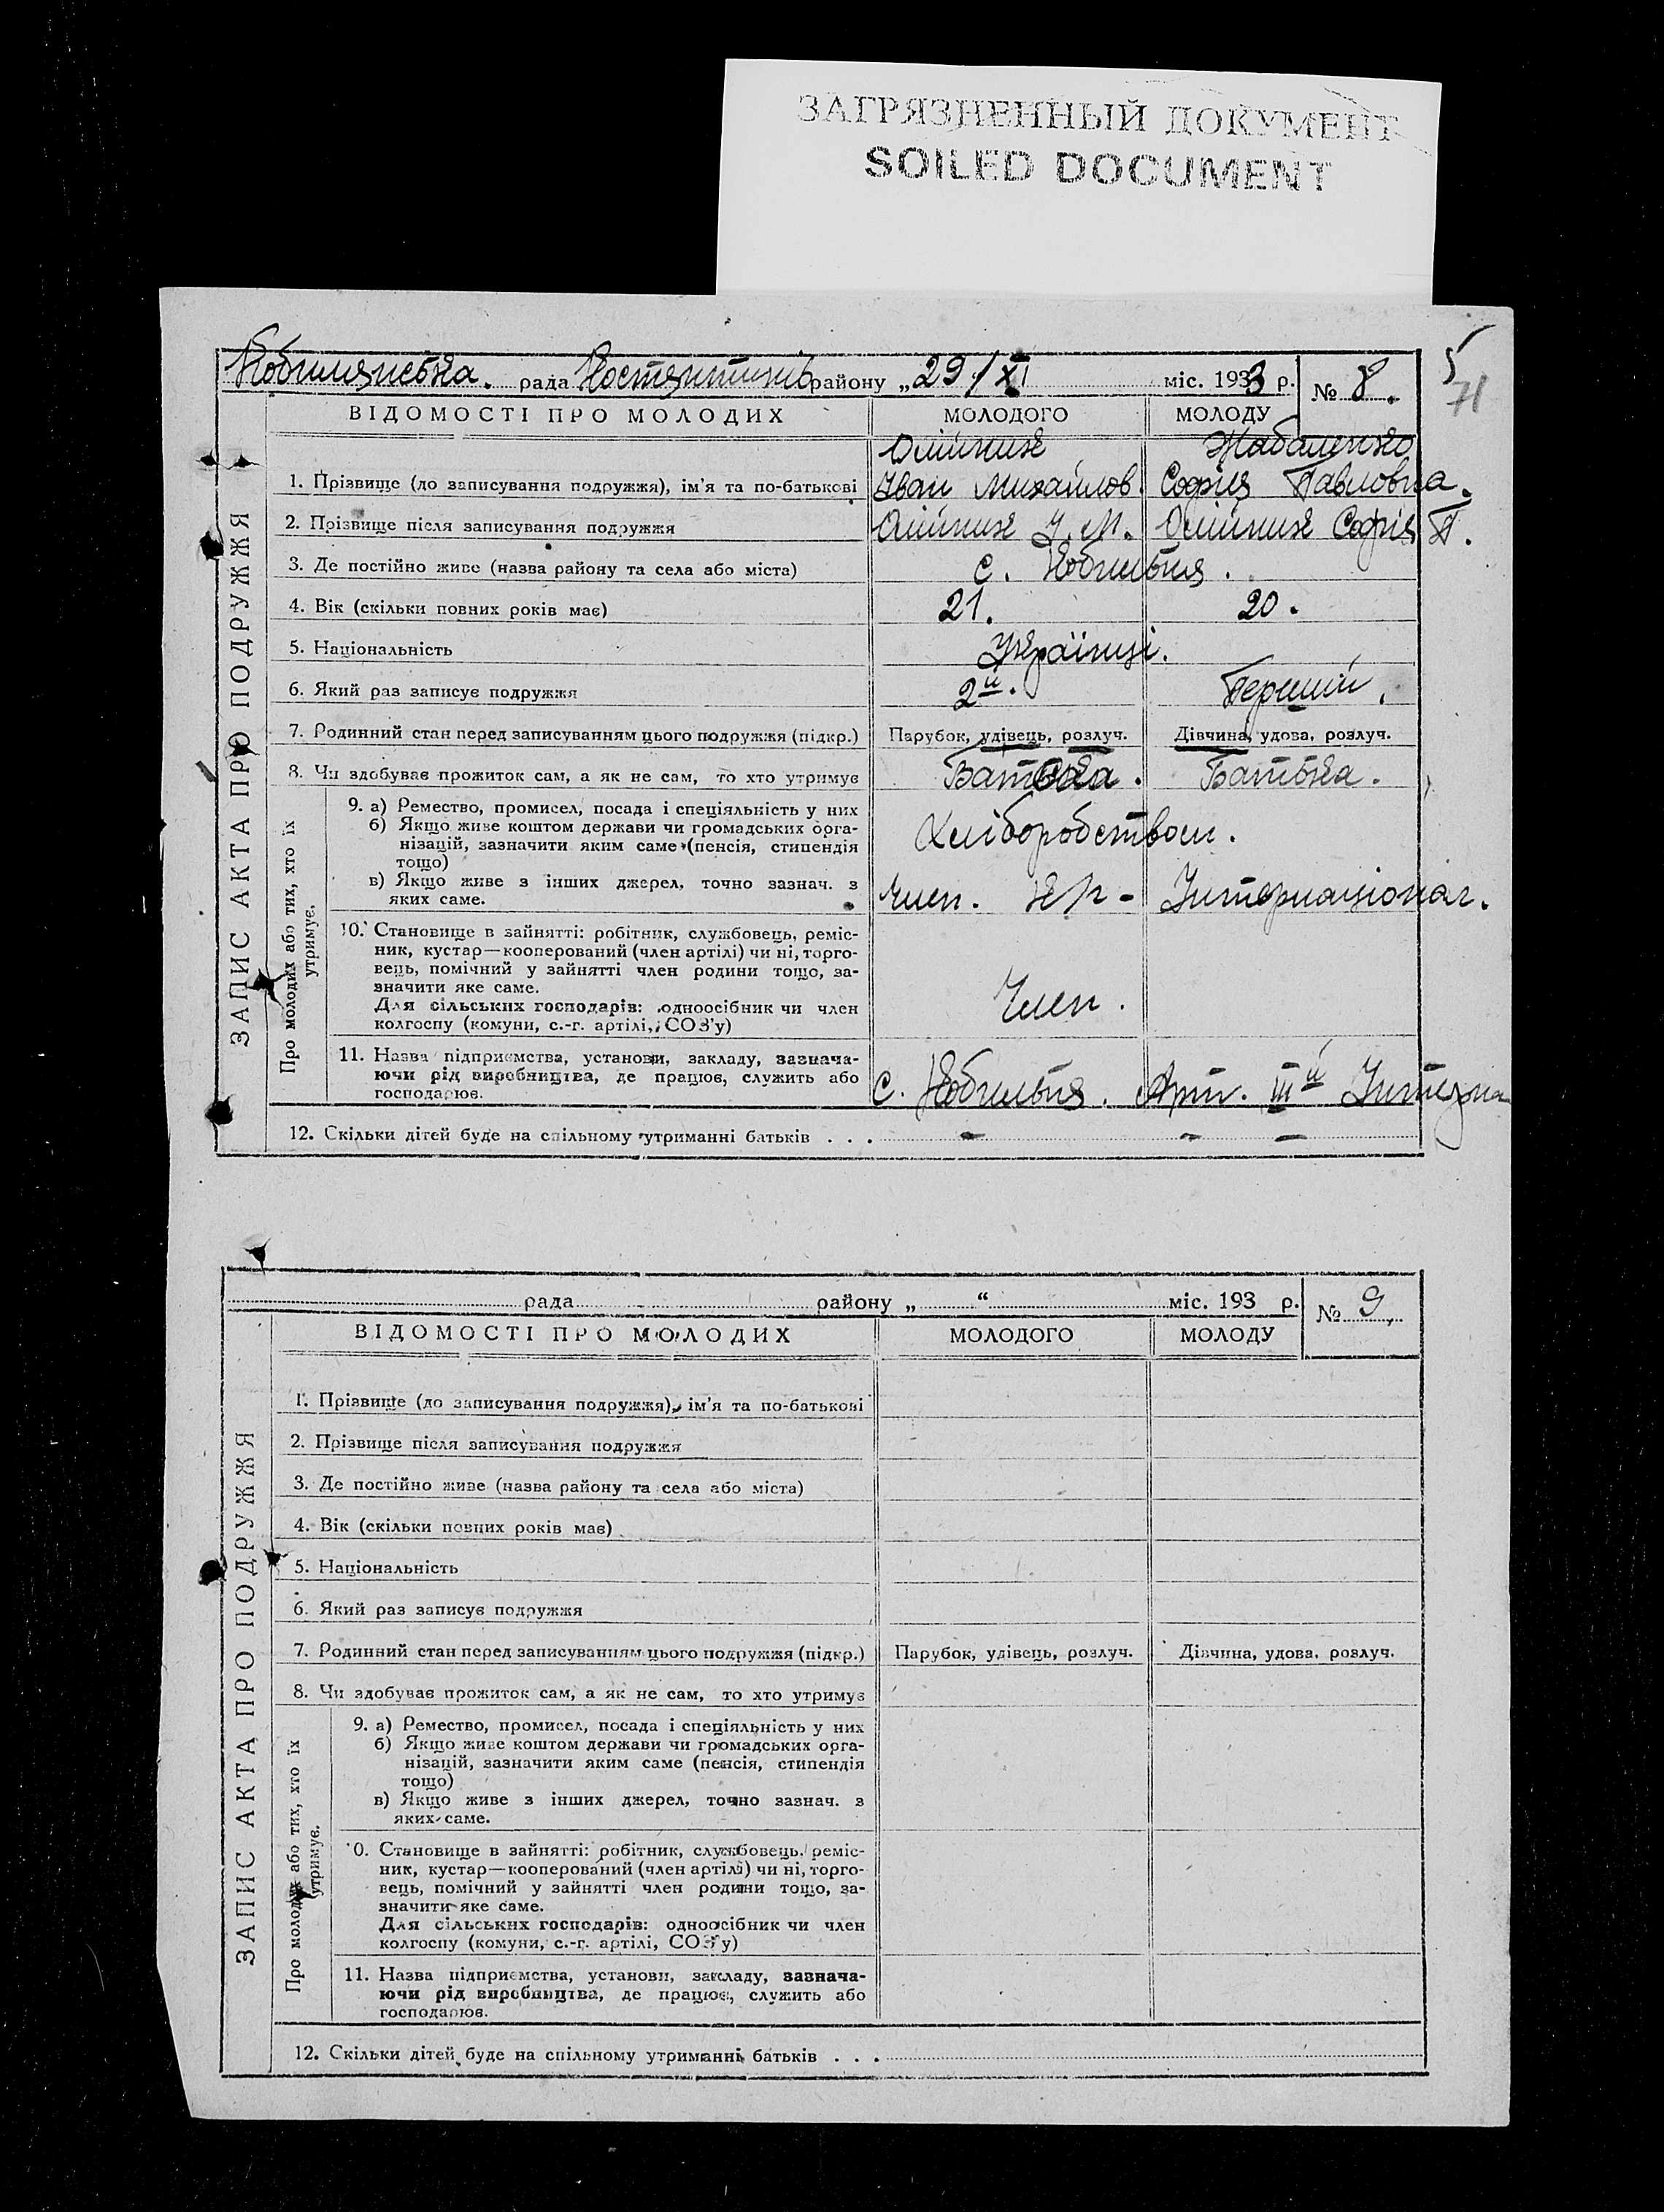 ЗАГРЯЗНЕННЫЙ ДОКУМЕНТ
SOILED DOCUMENT
5
71
рада Костянтинів району „29/XI міс. 1933 р. № 8.
ВІДОМОСТІ ПРО МОЛОДИХ МОЛОДОГО МОЛОДУ
ЗАПИС АКТА ПРО ПОДРУЖЖЯ
Олійник
1. Прізвище (до записування подружжя), ім'я та по-батькові Іван Михайлов. Софія Павловна.
2. Прізвище після записування подружжя Олійник І. М. Олійник Софія П.
3. Де постійно живе (назва району та села або міста) с.
4. Вік (скільки повних років має) 21. 20.
5. Національність Українці.
6. Який раз записує подружжя 2й. Перший.
7. Родинний стан перед записуванням цього подружжя (підкр.) Парубок, удівець, розлуч. Дівчина, удова, розлуч.
8. Чи здобуває прожиток сам, а як не сам, то хто утримує Батька. Батька.
Про молодих або тих, хто їх
утримує.
9. а) Ремество, промисел, посада і спеціяльність у них
б) Якщо живе коштом держави чи громадських орга-
нізацій, зазначити яким саме (пенсія, стипендія
тощо)
Хліборобством.
в) Якщо живе з інших джерел, точно зазнач. з
яких саме.
Член. Інтернаціонал.
10. Становище в зайнятті: робітник, службовець, реміс-
ник, кустар—кооперований (член артілі) чи ні, торго-
вець, помічний у зайнятті член родини тощо, за-
значити яке саме.
Для сільських господарів: одноосібник чи член
колгоспу (комуни, с.-г. артілі, СОЗ'у)
Член.
11. Назва підприємства, установи, закладу, зазнача-
ючи рід виробництва, де працює, служить або
господарює.
с. Арт. IIIй Інтерна
12. Скільки дітей буде на спільному утриманні батьків . . . – – –
рада району „ “ міс. 193 р. № 9.
ВІДОМОСТІ ПРО МОЛОДИХ МОЛОДОГО МОЛОДУ
ЗАПИС АКТА ПРО ПОДРУЖЖЯ
1. Прізвище (до записування подружжя), ім'я та по-батькові
2. Прізвище після записування подружжя
3. Де постійно живе (назва району та села або міста)
4. Вік (скільки повних років має)
5. Національність
6. Який раз записує подружжя
7. Родинний стан перед записуванням цього подружжя (підкр.) Парубок, удівець, розлуч. Дівчина, удова, розлуч.
8. Чи здобуває прожиток сам, а як не сам, то хто утримує
Про молодих або тих, хто їх
утримує.
9. а) Ремество, промисел, посада і спеціяльність у них
б) Якщо живе коштом держави чи громадських орга-
нізацій, зазначити яким саме (пенсія, стипендія
тощо)
в) Якщо живе з інших джерел, точно зазнач. з
яких саме.
0. Становище в зайнятті: робітник, службовець, реміс-
ник, кустар—кооперований (член артілі) чи ні, торго-
вець, помічний у зайнятті член родини тощо, за-
значити яке саме.
Для сільських господарів: одноосібник чи член
колгоспу (комуни, с.-г. артілі, СОЗ'у)
11. Назва підприємства, установи, закладу, зазнача-
ючи рід виробництва, де працює, служить або
господарює.
12. Скільки дітей буде на спільному утриманні батьків . . .